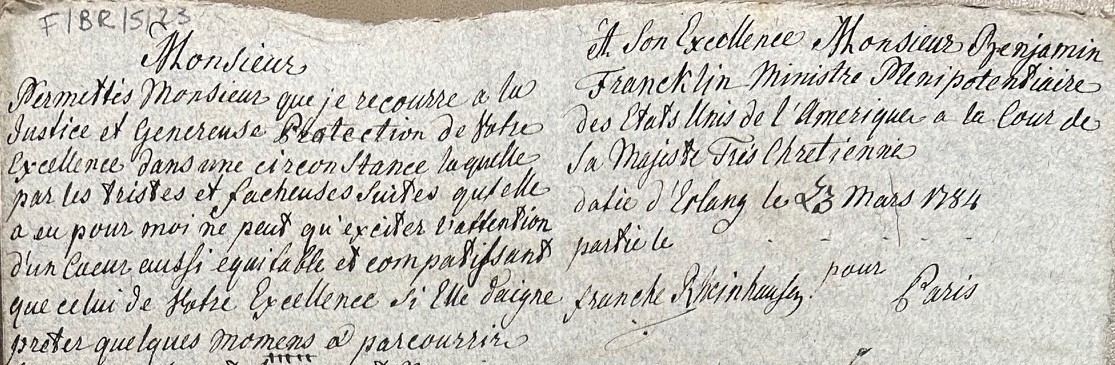 F/BR/5/23
Monsieur
Permettés Monsieur que je recourre a la
Justice et Genereuse Protection de Votre
Excellence dans une circonstance laquelle
par les tristes et facheuses suites qu'elle
a eu pour moi ne peut qu'exciter l'attention
d'un Coeur aussi equitable et compatissant
que celui de Votre Excellence si Elle daigne
preter quelques momens a parcourrir
A Son Excellence Monsieur Benjamin
Francklin Ministre Plenipotentiaire
des Etats Unis de l'Amerique a la Cour de
sa Majeste Trés Chretienne
datie d'Erlang le 23 Mars 1784
partie le
pour
franche Rheinhausen. Paris